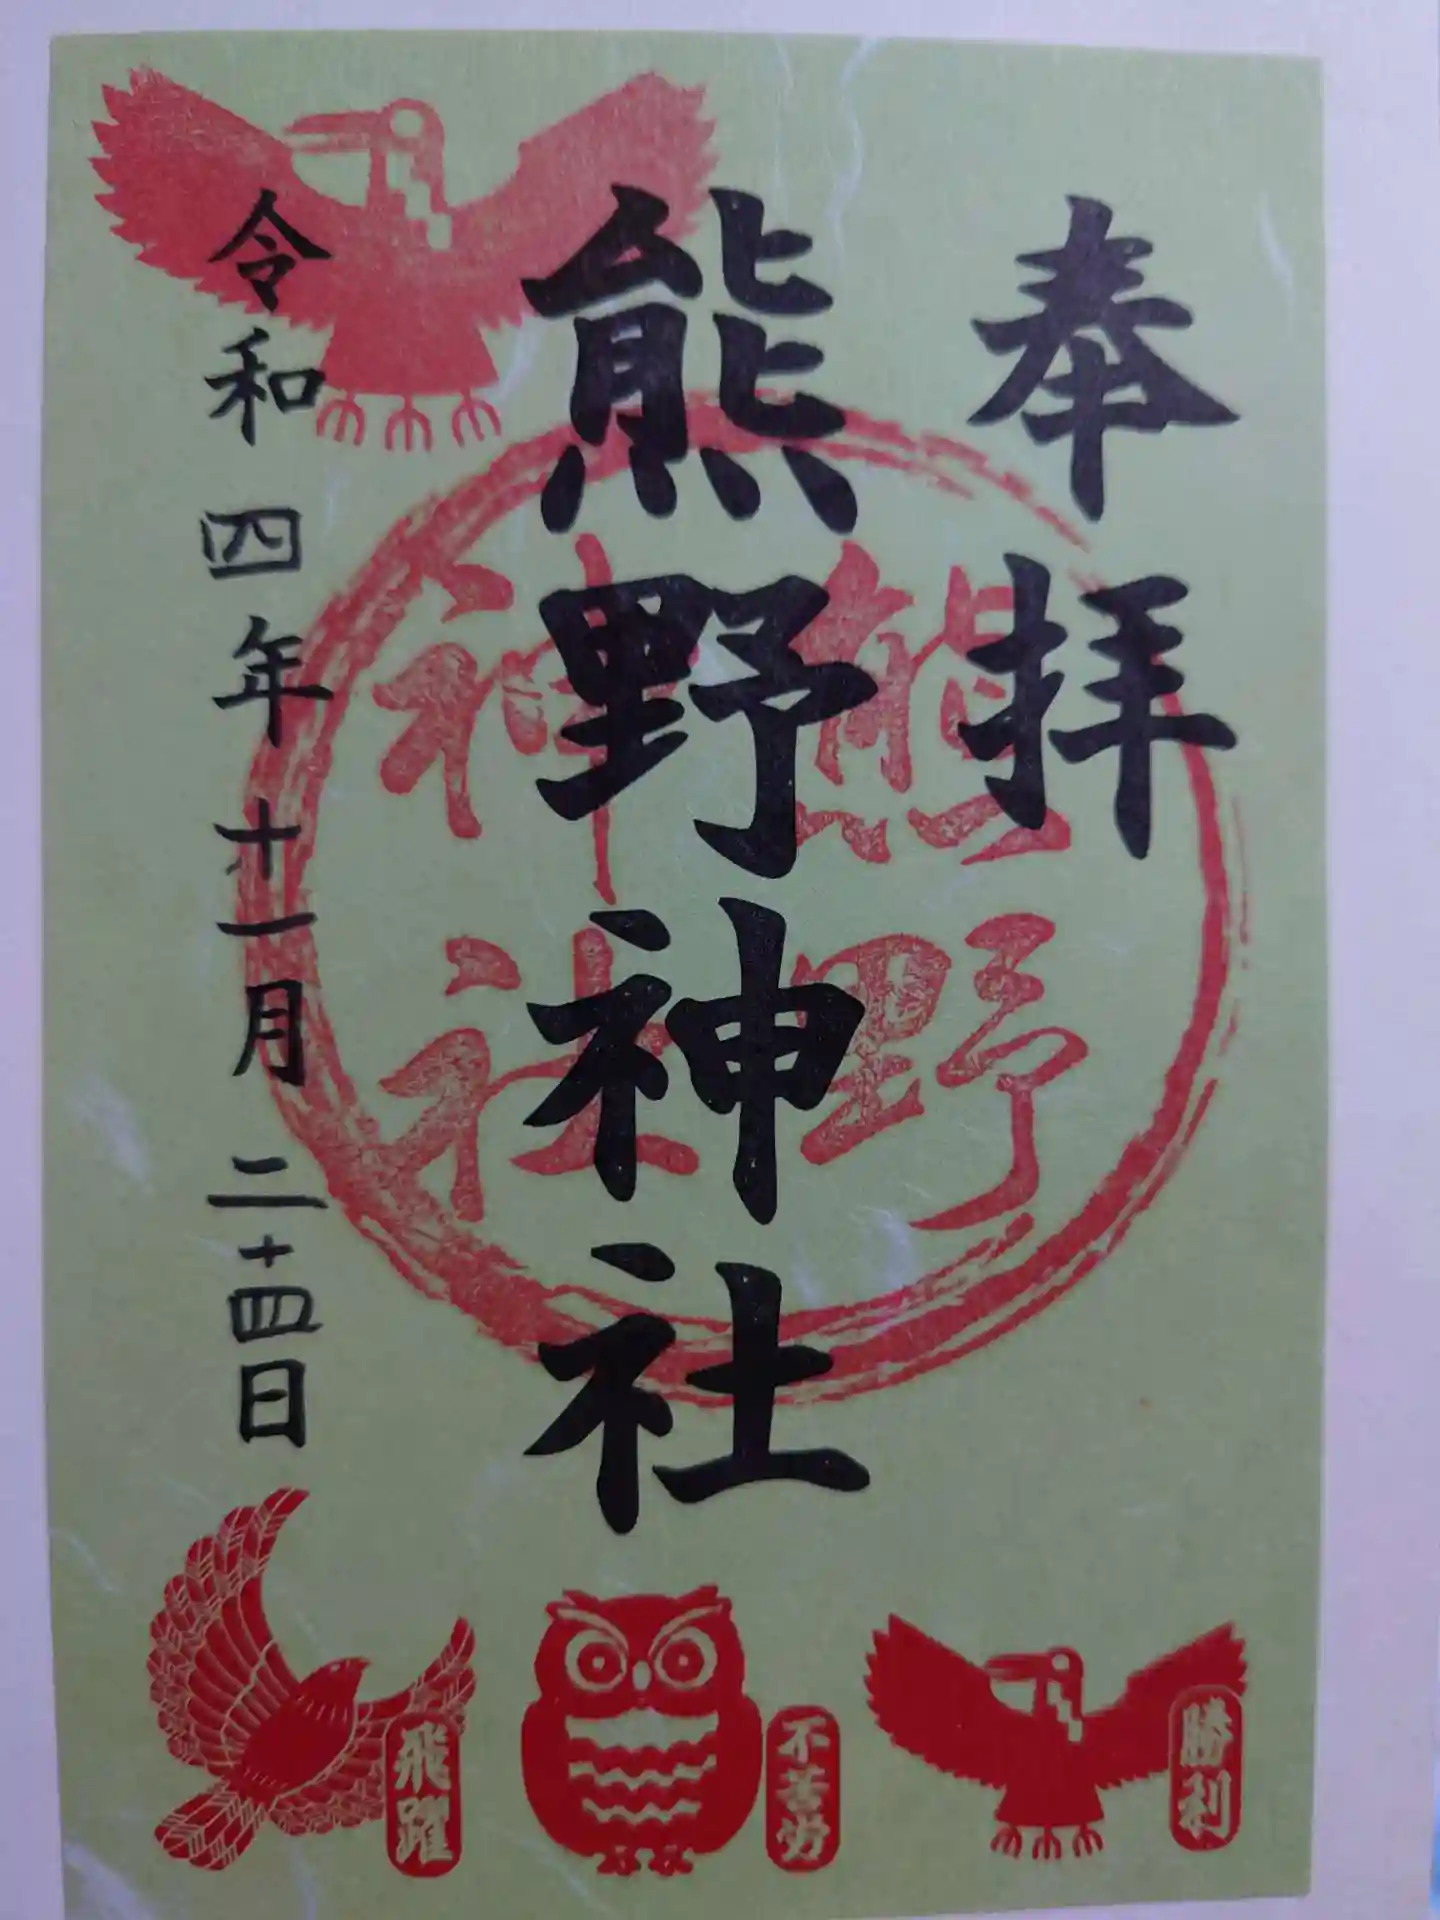 奉拝
熊野神社
熊野
神社
令和四年十一月二十四日
勝利
不苦労
飛躍